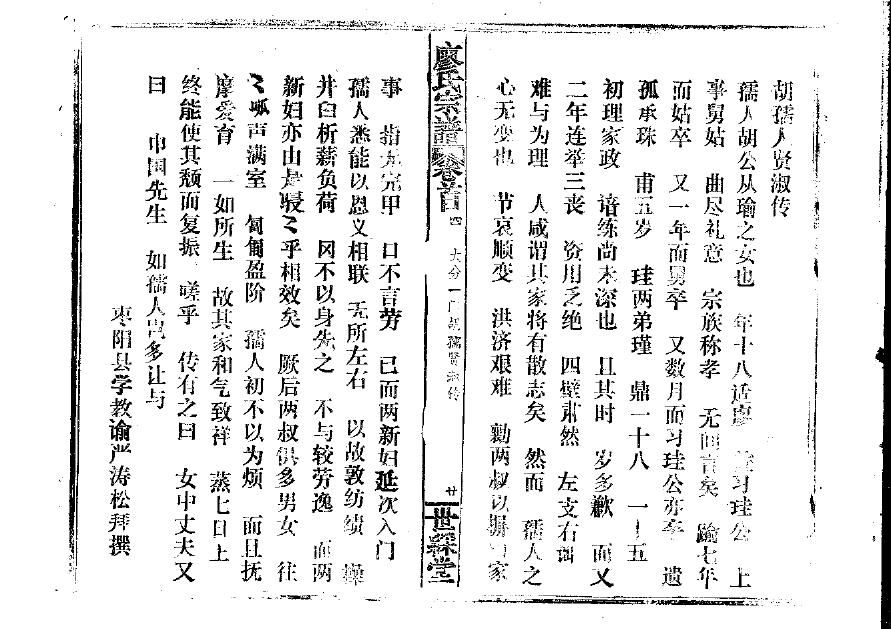 胡孺人贤淑传
孺人胡公从瑜之女也 年十八适廖 习珪公 上
事舅姑 曲尽礼意 宗族称孝 无间言矣 踰七年
而姑卒 又一年而舅卒 又数月而习珪公亦卒 遗
孤承珠 甫五岁 珪两弟瑾 鼎一十八 一十五
初理家政 谙练尚未深也 且其时 岁多歉 而又
二年连举三丧 资用乏绝 四壁肃然 左支右
难与为理 人咸谓其家将有散志矣 然而 孺人之
心无变也 节哀顺变 洪济艰难 勷两叔以 家
廖氏宗谱 卷首 四 大分一门胡孺贤淑传 廿 世䌽堂
事 指 完甲 口不言劳 已而两新妇延次入门
孺人悉能以恩义相联 无所左右 以故敦纺绩 操
井臼析薪负荷 罔不以身先之 不与较劳逸 而两
新妇亦由是骎〻乎相效矣 厥后两叔俱多男女 往
〻呱声满室 匍匐盈阶 孺人初不以为烦 而且抚
摩爱育 一如所生 故其家和气致祥 蒸七日上
终能使其颓而复振 嗟乎 传有之曰 女中丈夫又
曰 中国先生 如孺人岂多让与
枣阳县学教谕严涛松拜撰